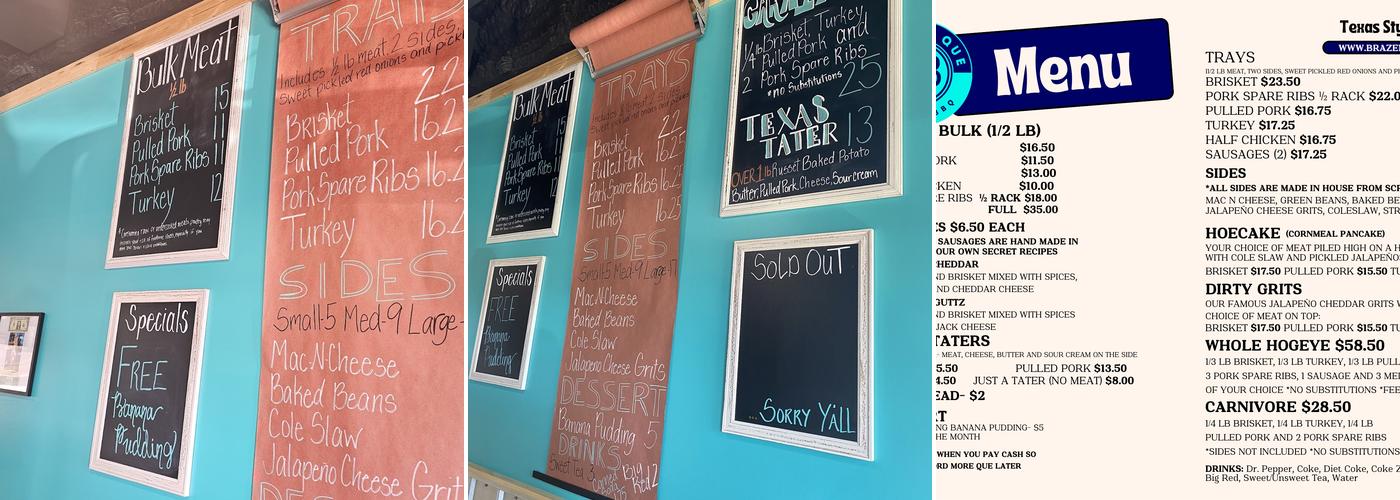 Bulk Meat
½ lb
Brisket 15
Pulled Pork 11
Pork Spare Ribs 11
Turkey 12
Specials
FREE
Banana
Pudding!
TRAYS
Includes ½ lb meat, 2 Sides,
Sweet pickled red onions and pickl
Brisket 22
Pulled Pork 16.2
Pork Spare Ribs 16.2
Turkey 16.2
SIDES
Small-5 Med-9 Large-
Mac-N-Cheese
Baked Beans
Cole Slaw
Jalapeño Cheese Grit
Bulk Meat
½ lb
Brisket 15
Pulled Pork 11
Pork Spare Ribs 11
Turkey 12
Specials
FREE
Banana
Pudding!
TRAYS
Brisket 22
Pulled Pork 16.25
Pork Spare Ribs 16.25
Turkey 16.25
SIDES
Small-5 Med-9 Large-17
Mac-N-Cheese
Baked Beans
Cole Slaw
Jalapeño Cheese Grits
DESSERT
Banana Pudding 5
DRINKS
Sweet Tea 3
Big Red 2
¼ lb Brisket, Turkey,
Pulled Pork and
2 Pork Spare Ribs
*no Substitutions 25
TEXAS
TATER 13
OVER 1 lb Russet Baked Potato
Butter, Pulled Pork, Cheese, Sour cream
SOLD OUT
SORRY Y'ALL
QUE
BBQ
Menu
BULK (1/2 LB)
$16.50
ORK $11.50
$13.00
CKEN $10.00
RE RIBS ½ RACK $18.00
FULL $35.00
S $6.50 EACH
SAUSAGES ARE HAND MADE IN
OUR OWN SECRET RECIPES
HEDDAR
ND BRISKET MIXED WITH SPICES,
ND CHEDDAR CHEESE
GUTTZ
ND BRISKET MIXED WITH SPICES
JACK CHEESE
TATERS
- MEAT, CHEESE, BUTTER AND SOUR CREAM ON THE SIDE
5.50 PULLED PORK $13.50
4.50 JUST A TATER (NO MEAT) $8.00
EAD- $2
RT
NG BANANA PUDDING- $5
HE MONTH
WHEN YOU PAY CASH SO
RD MORE QUE LATER
Texas Sty
WWW.BRAZE
TRAYS
(1/2 LB MEAT, TWO SIDES, SWEET PICKLED RED ONIONS AND PI
BRISKET $23.50
PORK SPARE RIBS ½ RACK $22.0
PULLED PORK $16.75
TURKEY $17.25
HALF CHICKEN $16.75
SAUSAGES (2) $17.25
SIDES
*ALL SIDES ARE MADE IN HOUSE FROM SCR
MAC N CHEESE, GREEN BEANS, BAKED BE
JALAPEÑO CHEESE GRITS, COLESLAW, STR
HOECAKE (CORNMEAL PANCAKE)
YOUR CHOICE OF MEAT PILED HIGH ON A H
WITH COLE SLAW AND PICKLED JALAPEÑO
BRISKET $17.50 PULLED PORK $15.50 TU
DIRTY GRITS
OUR FAMOUS JALAPEÑO CHEDDAR GRITS W
CHOICE OF MEAT ON TOP:
BRISKET $17.50 PULLED PORK $15.50 T
WHOLE HOGEYE $58.50
1/3 LB BRISKET, 1/3 LB TURKEY, 1/3 LB PULL
3 PORK SPARE RIBS, 1 SAUSAGE AND 3 ME
OF YOUR CHOICE *NO SUBSTITUTIONS *FEE
CARNIVORE $28.50
1/4 LB BRISKET, 1/4 LB TURKEY, 1/4 LB
PULLED PORK AND 2 PORK SPARE RIBS
*SIDES NOT INCLUDED *NO SUBSTITUTIONS
DRINKS: Dr. Pepper, Coke, Diet Coke, Coke Z
Big Red, Sweet/Unsweet Tea, Water